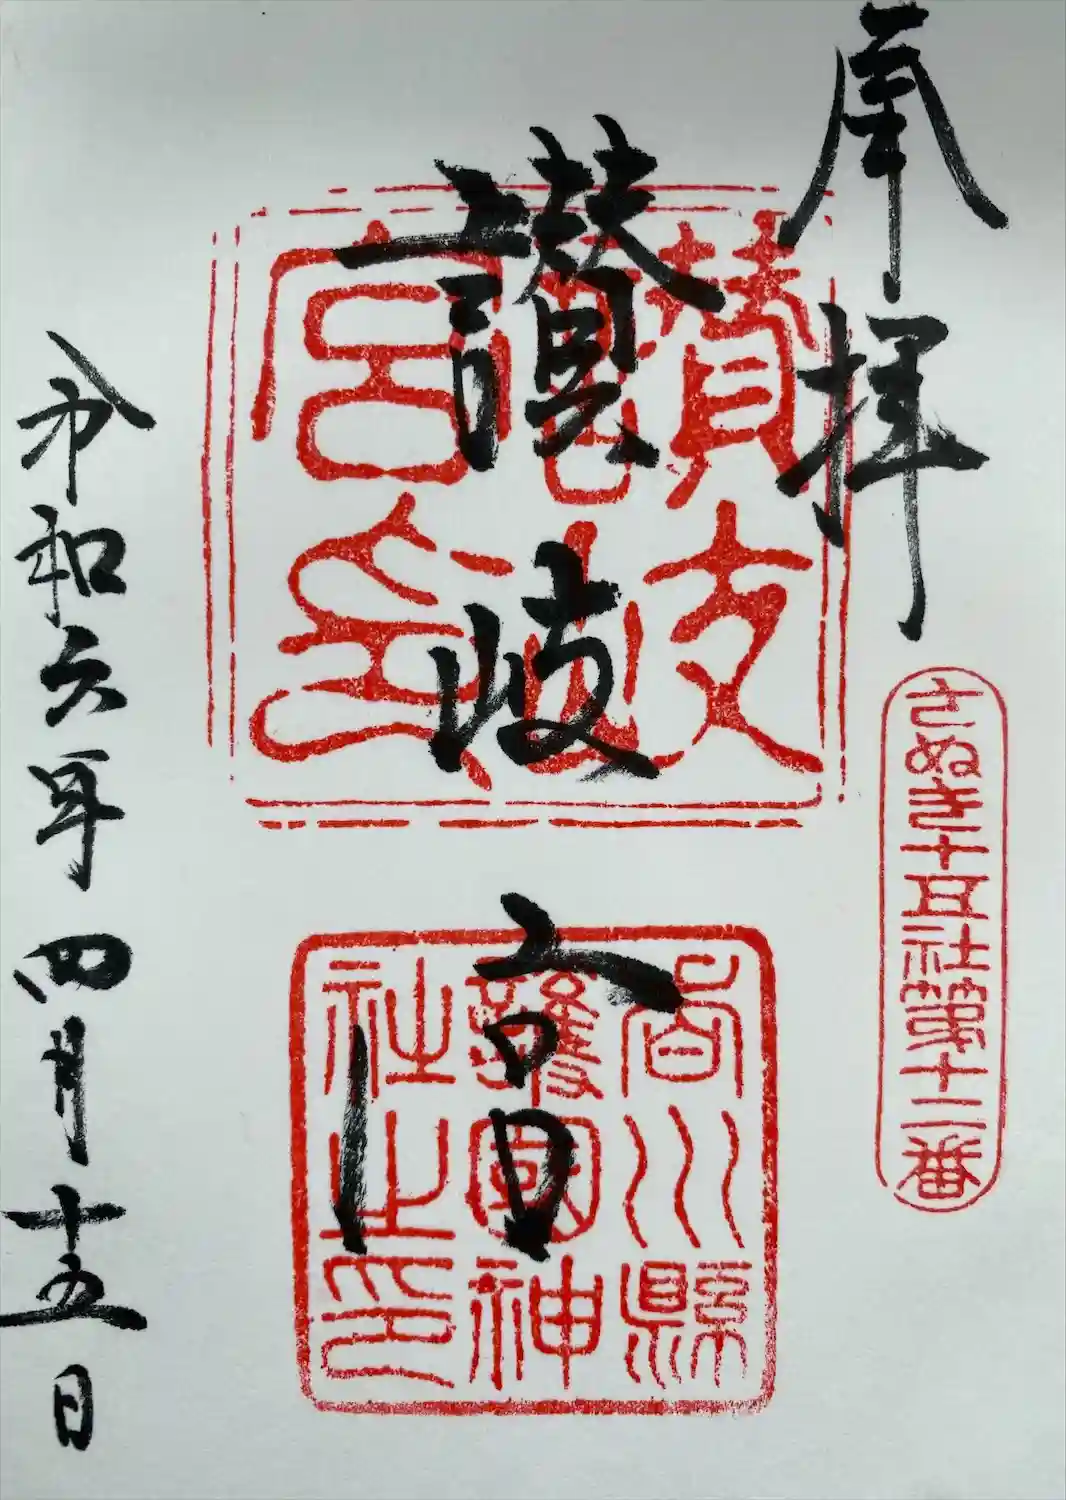 奉拝
さぬき十五社第十二番
讃岐宮
讃岐宮印
香川縣護國神社之印
令和六年四月十五日